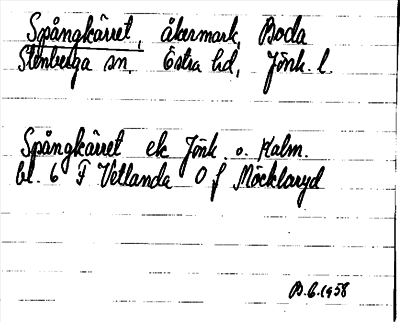 Spångkärret, åkermark, Boda
Stenberga sn, Östra hd, Jönk. l.
Spångkärret ek Jönk. o. Kalm.
bl. 6 F Vetlanda O f Möcklaryd
B.E.1958